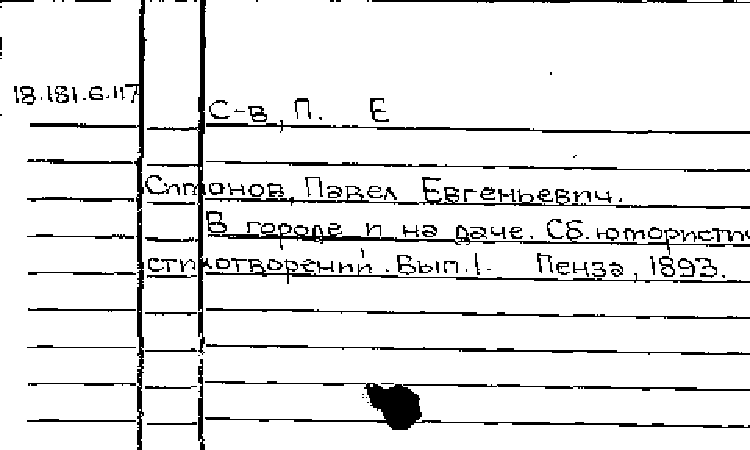 18.181.6.117
С-в, П. Е
Симонов, Павел Евгеньевич.
В городе и на даче. Сб. юмористич
стихотворений. Вып. 1. Пенза, 1893.